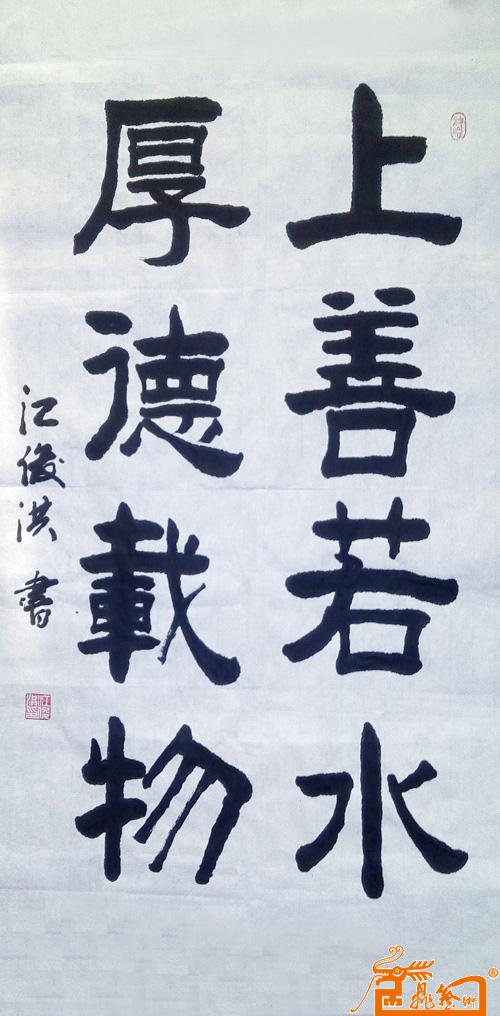 上善若水
厚德載物
江俊洪 書